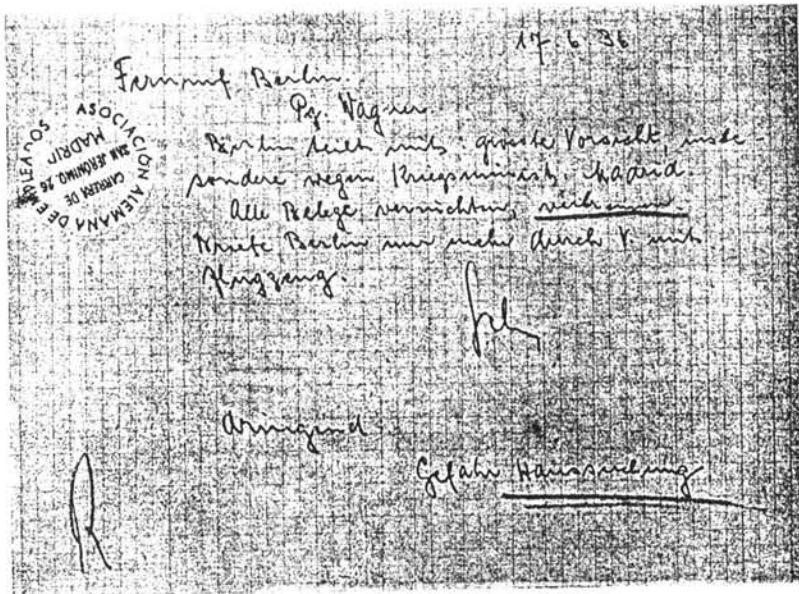 17.6.36
Fernruf Berlin.
Pg. Wagner
Berlin teilt mit: grösste Vorsicht, insbe-
sondere wegen Kriegsminist. Madrid.
Alle Belege vernichten, verbrennen.
Briefe Berlin nur mehr durch V. mit
Flugzeug.
dringend
Gefahr Haussuchung
ASOCIACIÓN ALEMANA DE EMPLEADOS
CARRERA DE
SAN JERÓNIMO, 26
MADRID